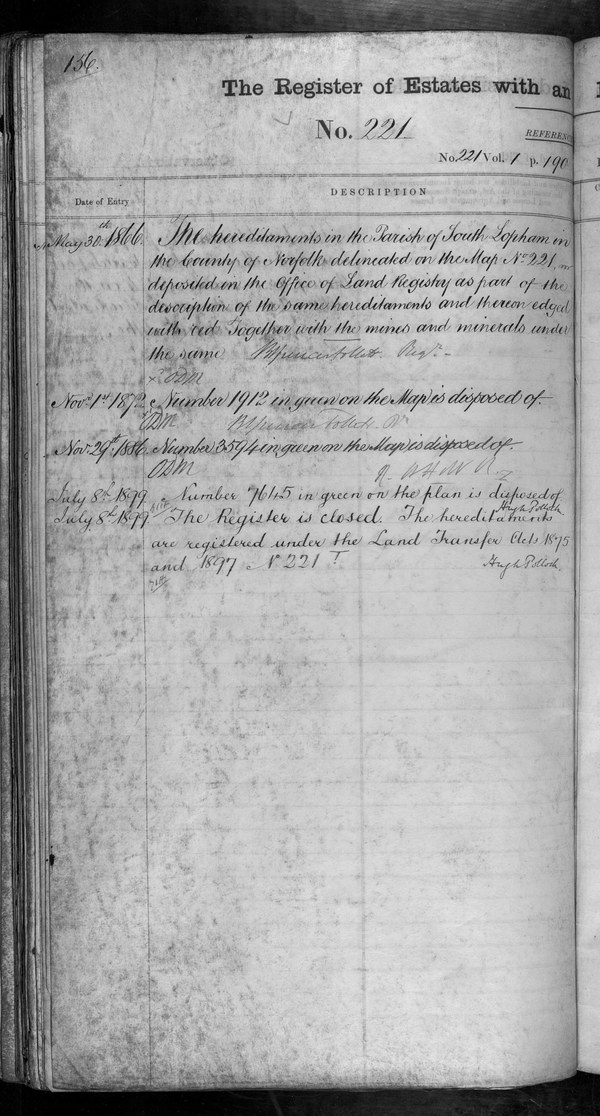 156.
The Register of Estates with an
No. 221
REFERENC
No. 221 Vol. 1 p. 190
Date of Entry
DESCRIPTION
May 30th 1866. The hereditaments in the Parish of South Lopham in
the County of Norfolk delineated on the Map No 221,
deposited in the Office of Land Registry as part of the
description of the same hereditaments and thereon edged
with red Together with the mines and minerals under
the same Brent Spencer Follett Regr.
ODM
Novr. 1st 1872. Number 1912 in green on the Map is disposed of.
ODM Brent Spencer Follett Rr
Nov 29th 1886 Number 3594 in green on the Map is disposed of.
ODM
July 8th 1899 Number 7645 in green on the plan is disposed of
Hugh Pollock
July 8th 1899 The Register is closed. The hereditaments
are registered under the Land Transfer Acts 1875
and 1897 No 221 T Hugh Pollock